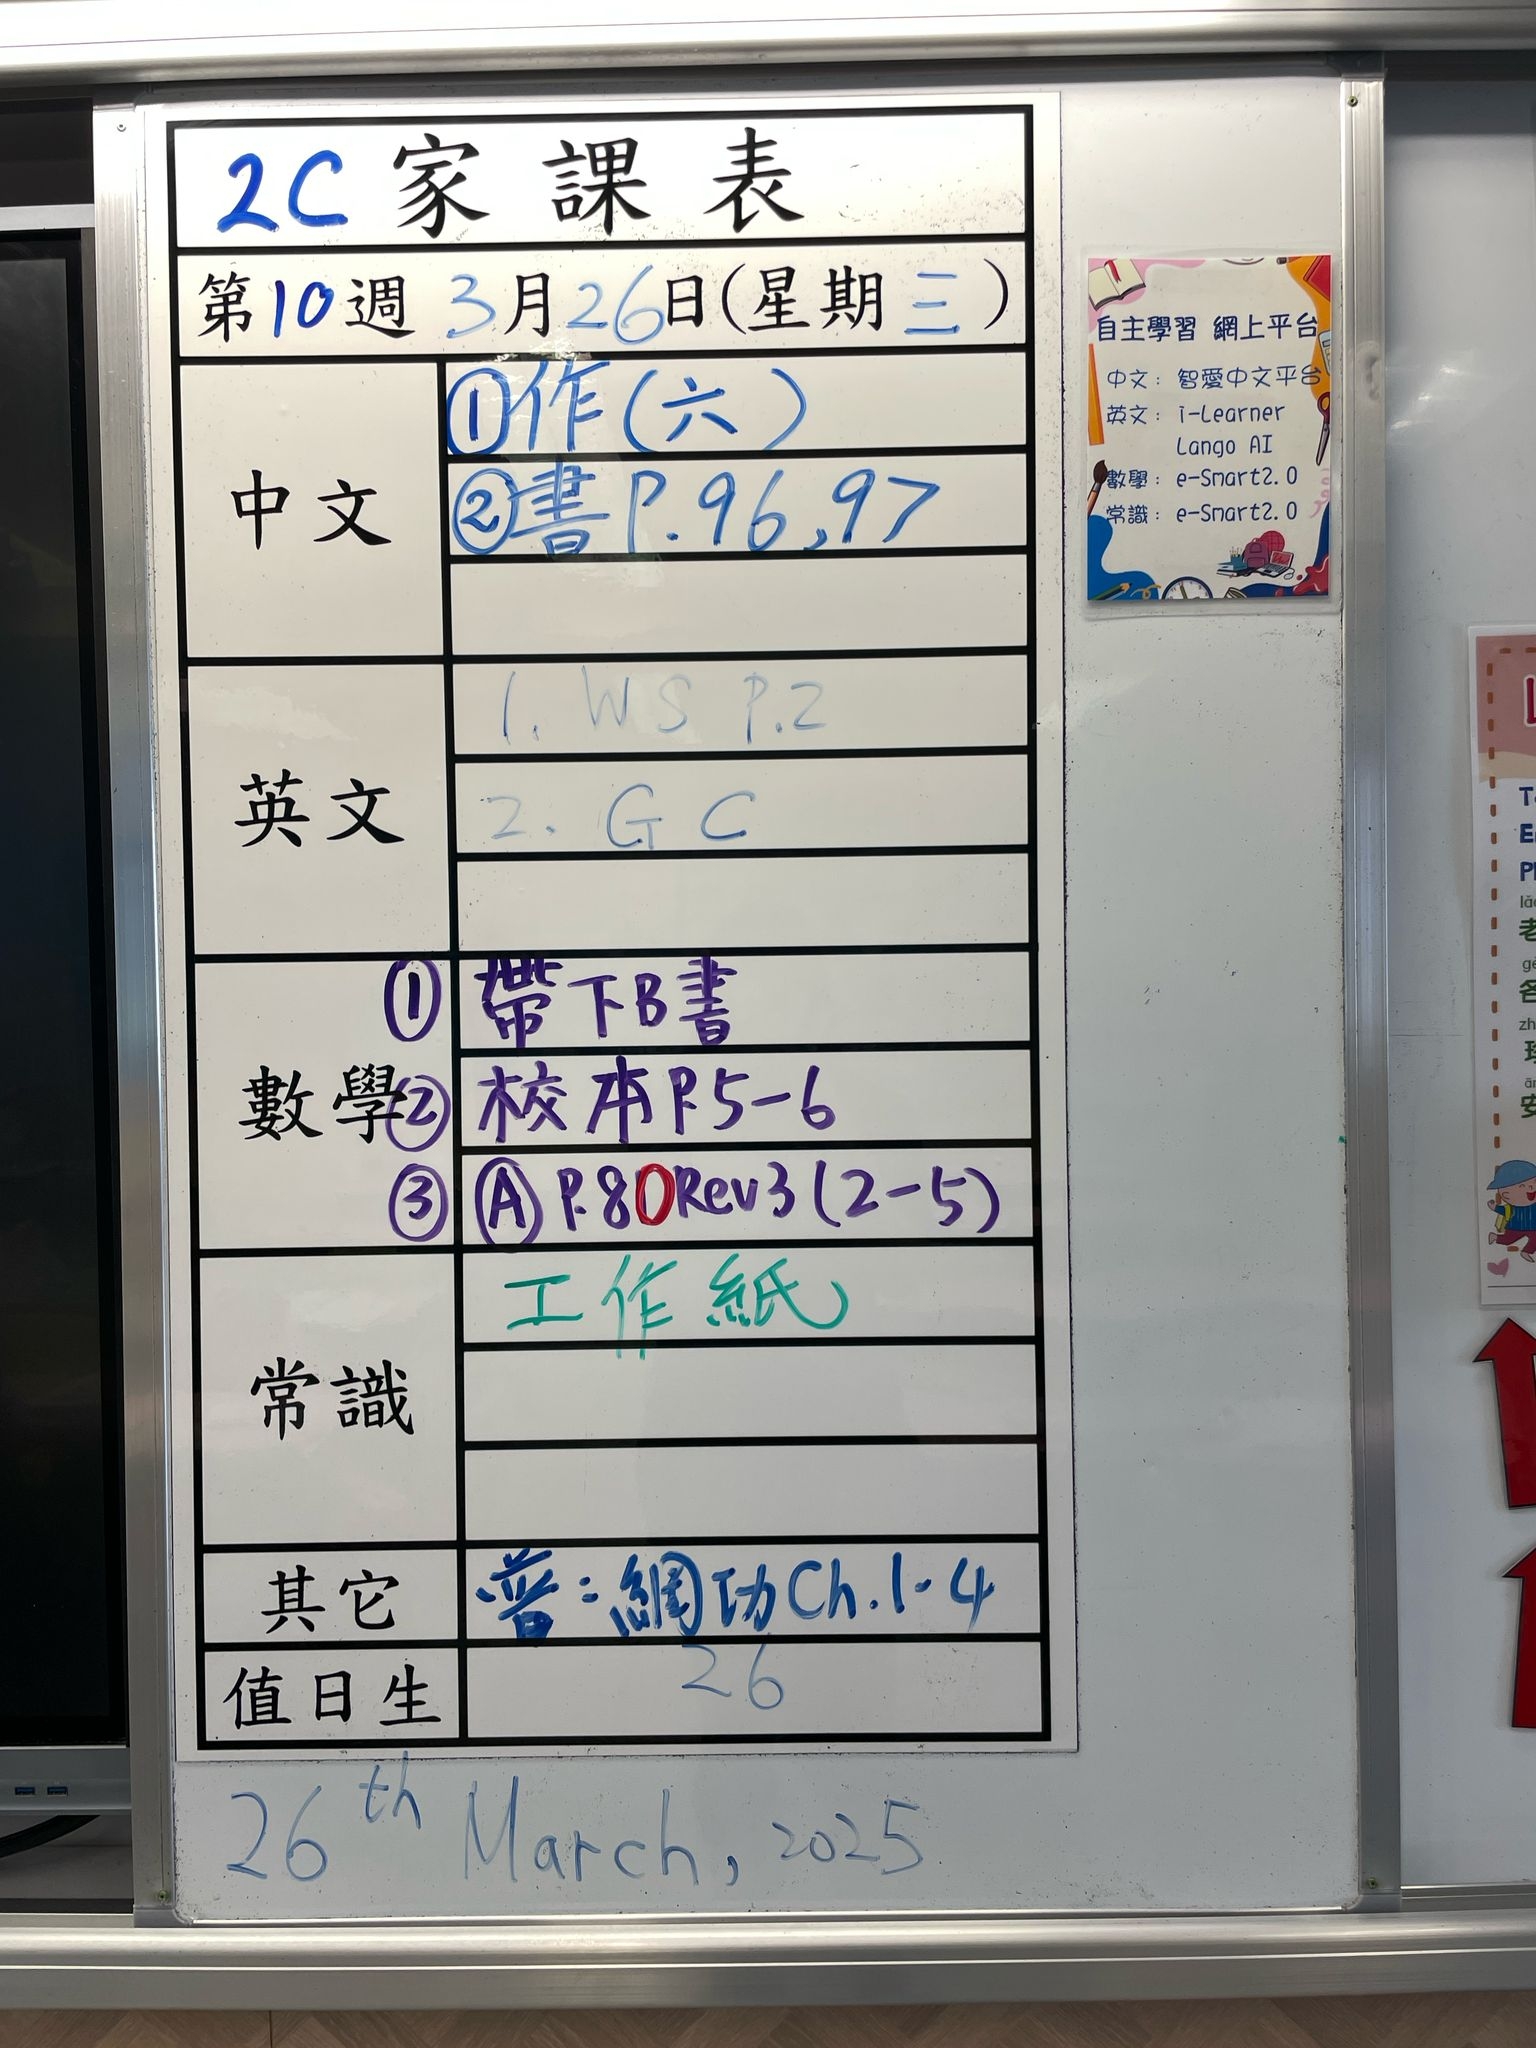 2C 家課表
第10週 3月26日(星期三)
中文
①作(六)
②書P.96,97
英文
1. WS P.2
2. GC
數學
① 帶下B書
② 校本P.5-6
③ Ⓐ P.80Rev3(2-5)
常識
工作紙
其它
普：網功Ch.1-4
值日生
26
26th March, 2025
自主學習 網上平台
中文： 智愛中文平台
英文： i-Learner
Lango AI
數學： e-Smart2.0
常識： e-Smart2.0